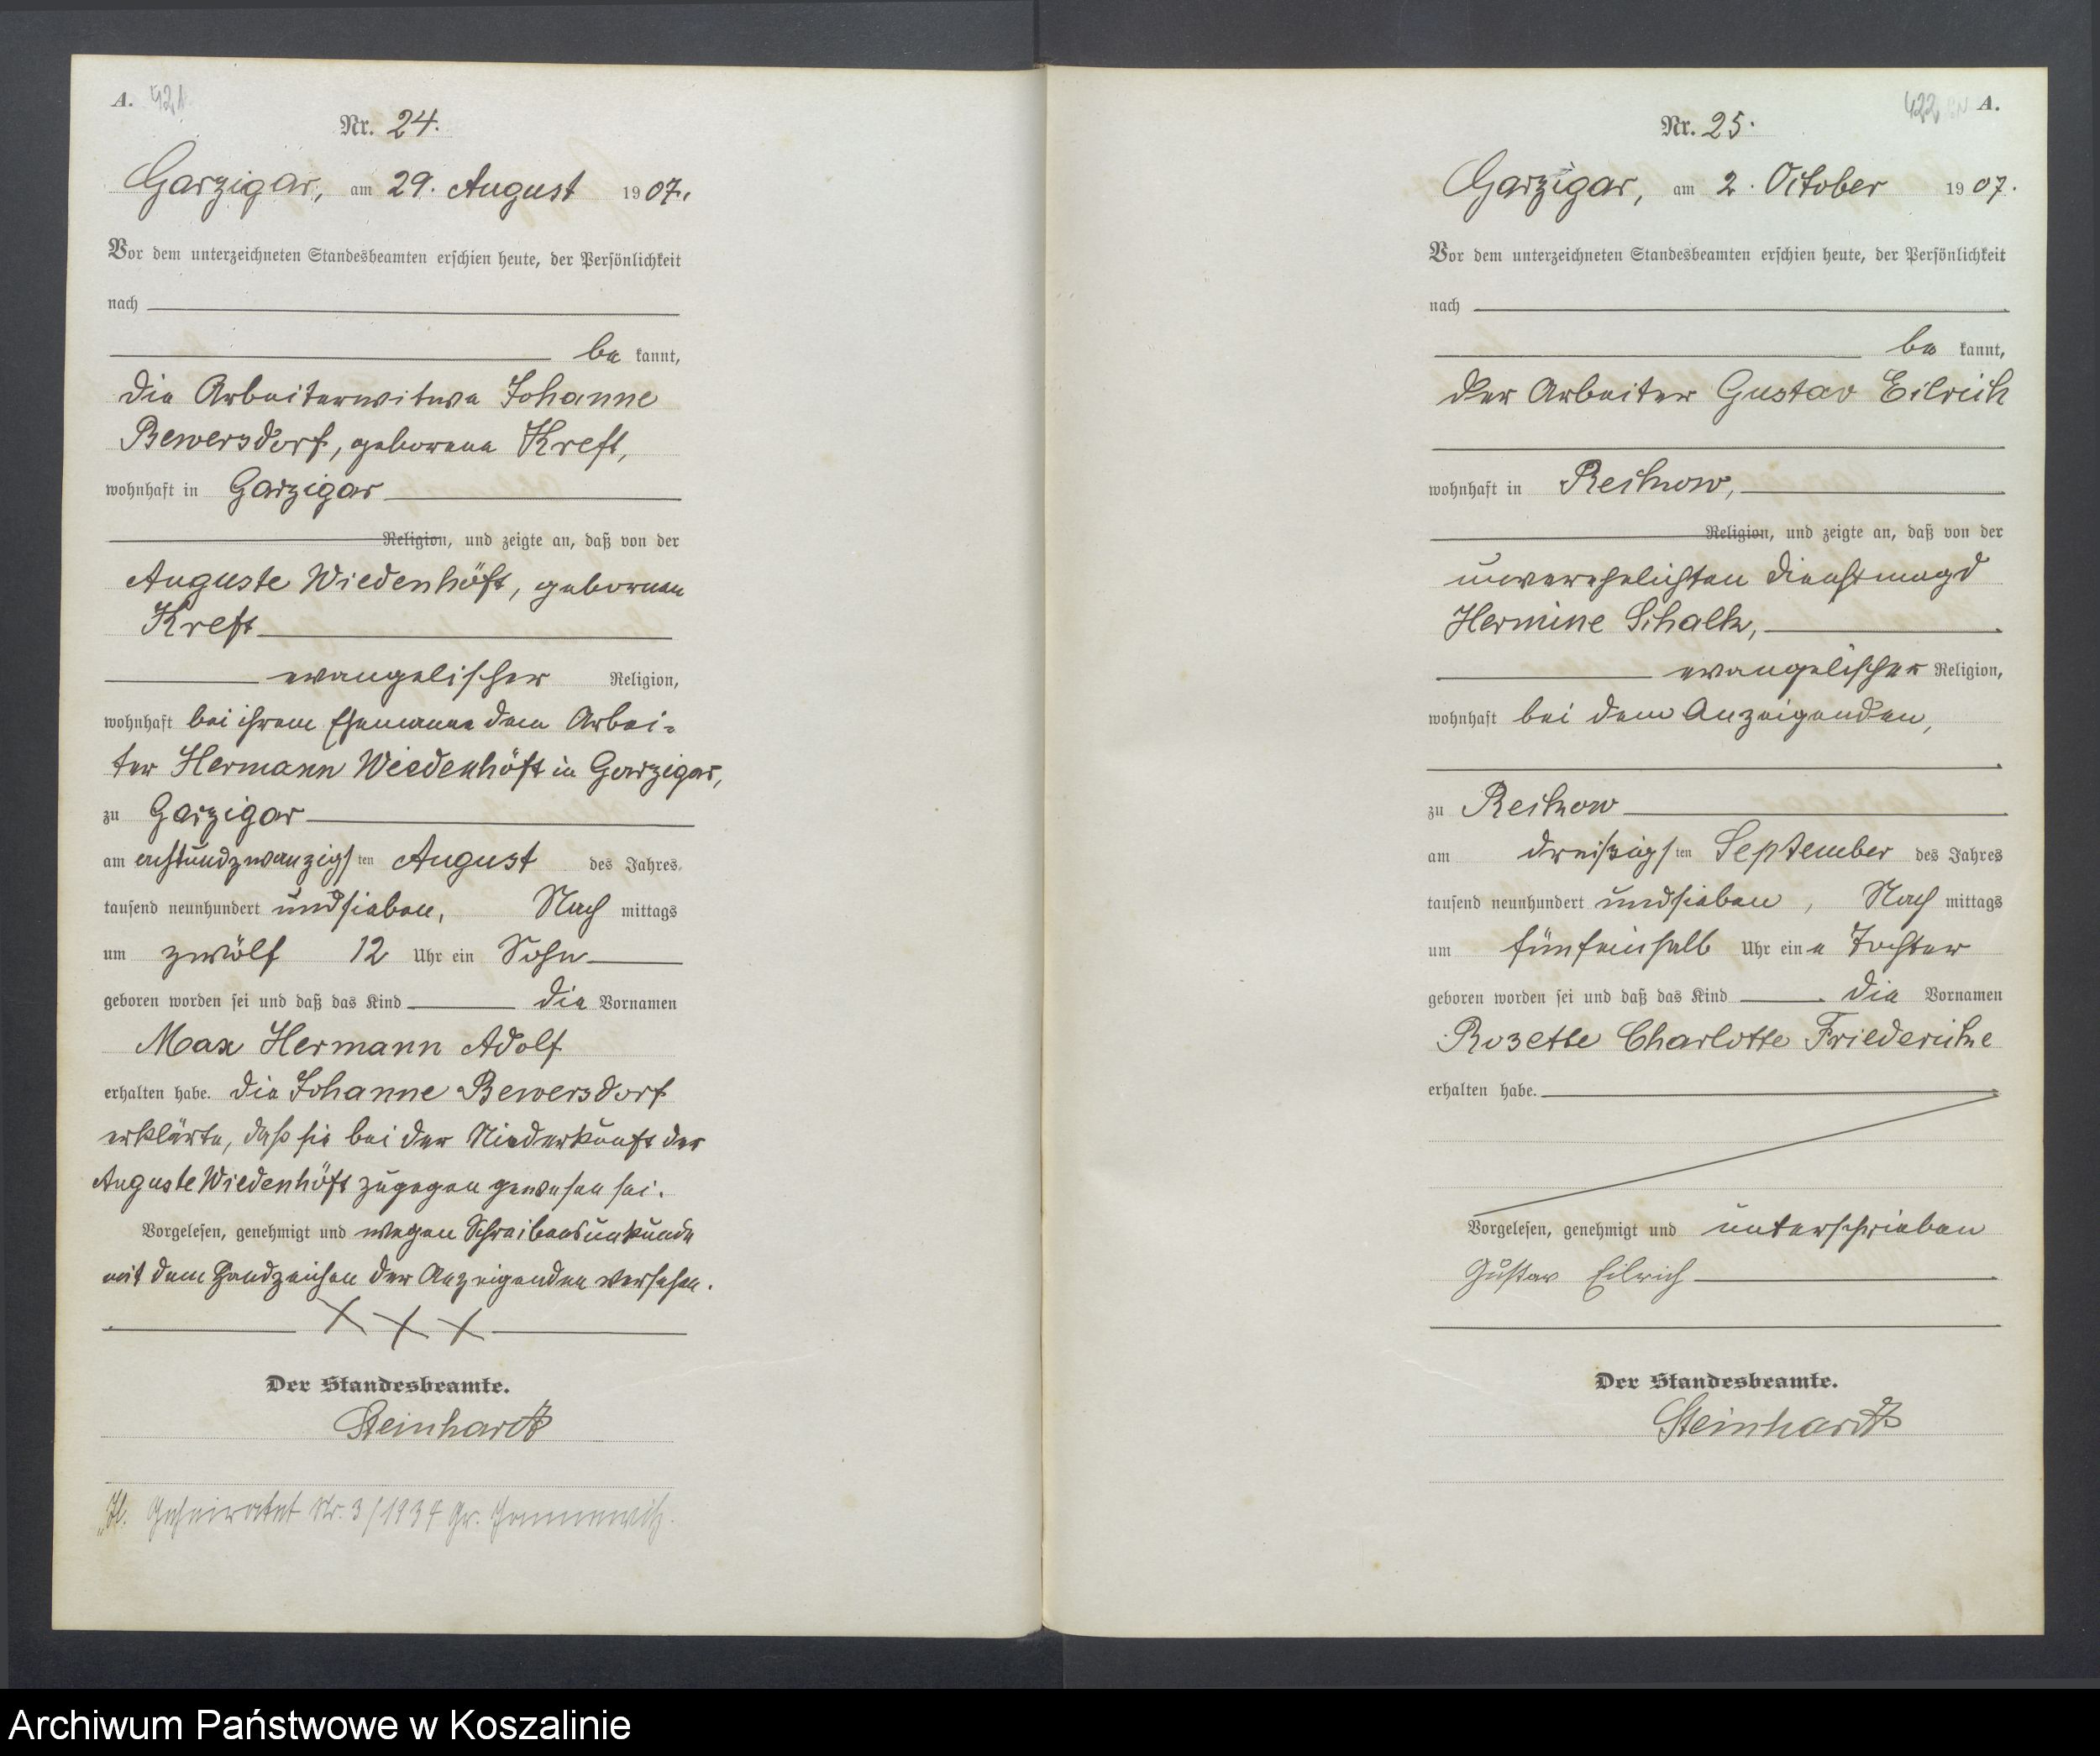 A. 421
Nr. 24.
Garzigar, am 29. August 1907.
Vor dem unterzeichneten Standesbeamten erschien heute, der Persönlichkeit
nach
be kannt,
die Arbeiterwitwe Johanne
Bewersdorf, geborene Kreft,
wohnhaft in Garzigar
Religion, und zeigte an, daß von der
Auguste Wiedenhöft, gebornen
Kreft
evangelischer Religion,
wohnhaft bei ihrem Ehemanne dem Arbei-
ter Hermann Wiedenhöft in Garzigar,
zu Garzigar
am achtundzwanzigsten August des Jahres
tausend neunhundert undsieben, Nach mittags
um zwölf 12 Uhr ein Sohn
geboren worden sei und daß das Kind die Vornamen
Max Hermann Adolf
erhalten habe. Die Johanne Bewersdorf
erklärte, daß sie bei der Niederkunft der
Auguste Wiedenhöft zugegen gewesen sei.
Vorgelesen, genehmigt und wegen Schreibensunkunde
mit dem Handzeichen der Anzeigenden versehen.
X X X
Der Standesbeamte.
Steinhardt
Geheiratet Nr. 3/1934 Gr. Jannewitz.
422 A.
Nr. 25.
Garzigar, am 2. October 1907.
Vor dem unterzeichneten Standesbeamten erschien heute, der Persönlichkeit
nach
be kannt,
der Arbeiter Gustav Eilrich
wohnhaft in Reckow,
Religion, und zeigte an, daß von der
unverehelichten Dienstmagd
Hermine Schalk,
evangelischer Religion,
wohnhaft bei dem Anzeigenden,
zu Reckow
am dreißigsten September des Jahres
tausend neunhundert undsieben, Nach mittags
um fünfeinhalb Uhr eine Tochter
geboren worden sei und daß das Kind die Vornamen
Rosette Charlotte Friedericke
erhalten habe.
Vorgelesen, genehmigt und unterschrieben
Gustav Eilrich
Der Standesbeamte.
Steinhardt
Archiwum Państwowe w Koszalinie